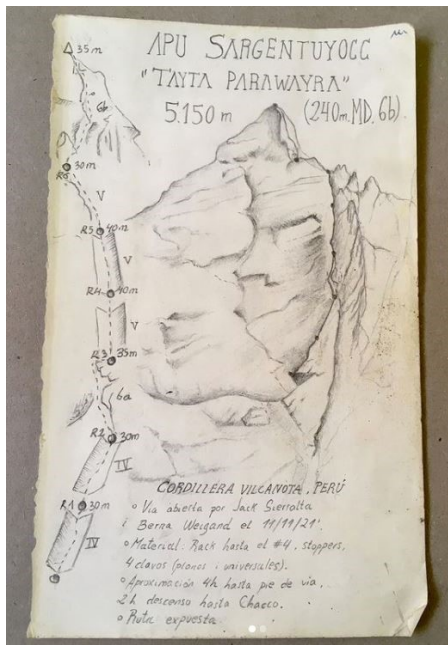 APU SARGENTUYOCC
"TAYTA PARAWAYRA"
5.150 m (240m. MD. 6b)
35m
6b
30m
R6
V
R5 40m
V
R4 40m
V
R3 35m
6a
R2 30m
IV
R1 30m
IV
CORDILLERA VILCANOTA, PERÚ
Via abierta por Jack Sierralta
i Berna Weigand el 11/11/21'.
Material: Rack hasta el #4, stoppers,
4 clavos (planos i universales).
Aproximación 4h hasta pie de via,
2h descenso hasta Chacco.
Ruta expuesta.